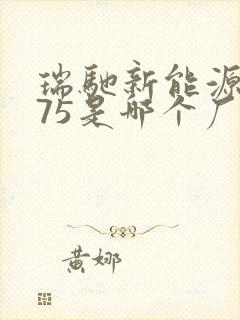 瑞馳新能源
75是哪个厂
黄娜